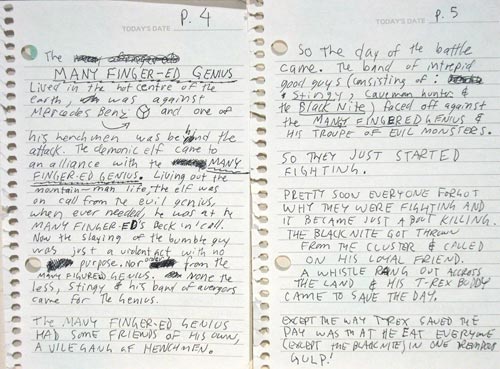 TODAY'S DATE
P. 4
The
MANY FINGER-ED GENIUS
Lived in the hot centre of the
Earth, was against
MERCEDES BENZ and one of
his henchmen was behind the
attack. The demonic elf came to
an alliance with the MANY
FINGER-ED GENIUS. Living out the
mountain-man life, the elf was
on call from the evil genius,
when ever needed, he was at the
MANY FINGER-ED'S beck in call.
Now the slaying of the bumble guy
was just a violent act with no
purpose, nor from the
MANY FIGURED GENIUS. None the
less, Stingy & his band of avengers
came for the Genius.
THE MANY FINGER-ED GENIUS
HAD SOME FRIENDS OF HIS OWN,
A VILE GANG OF HENCHMEN.
TODAY'S DATE
P. 5
So the day of the battle
came. The band of intrepid
good guys (consisting of:
& Stingy, Caveman hunter &
the Black Nite) faced off against
the MANY FINGERED GENIUS &
HIS TROUPE OF EVIL MONSTERS.
SO THEY JUST STARTED
FIGHTING.
PRETTY SOON EVERYONE FORGOT
WHY THEY WERE FIGHTING AND
IT BECAME JUST ABOUT KILLING.
THE BLACK NITE GOT THROWN
FROM THE CLUSTER & CALLED
ON HIS LOYAL FRIEND.
A WHISTLE RANG OUT ACCROSS
THE LAND & HIS T-REX BUDDY
CAME TO SAVE THE DAY.
EXCEPT THE WAY T-REX SAVED THE
DAY WAS THAT HE EAT EVERYONE
(EXCEPT THE BLACK NITE) IN ONE
GULP!